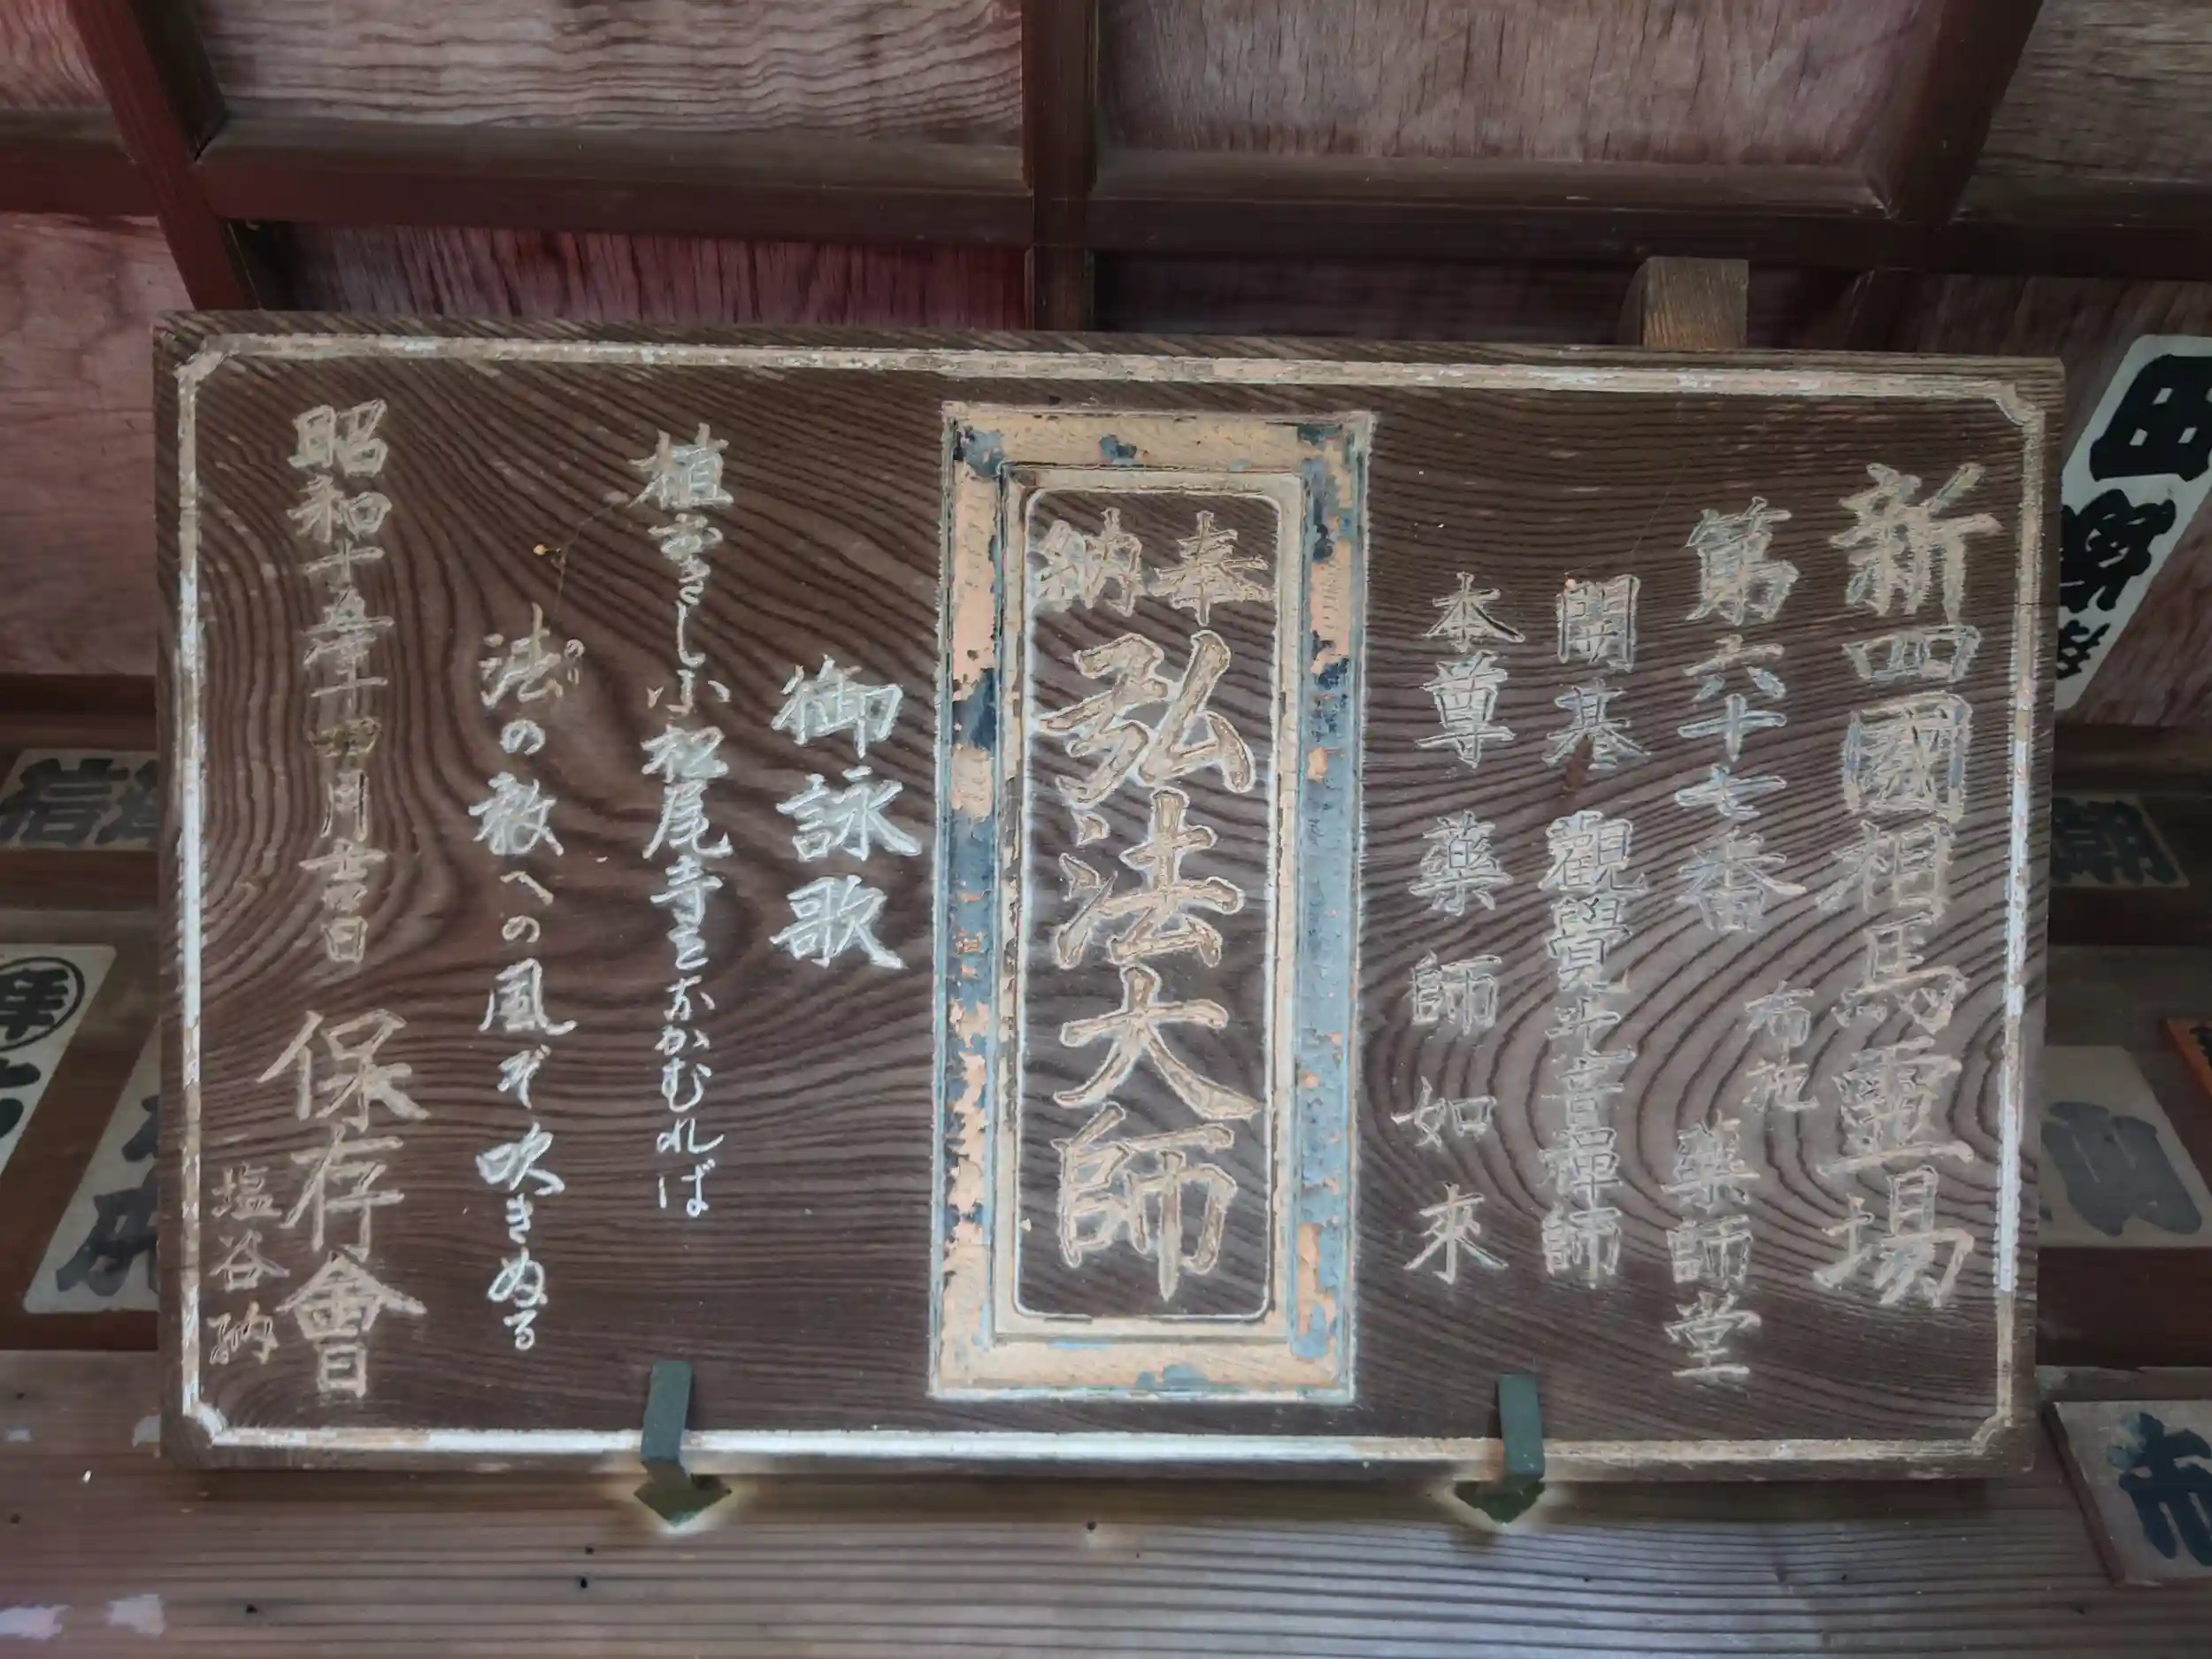 新四國相馬靈場
第六十七番 布施 藥師堂
開基 觀覺光音禪師
本尊 藥師如來
奉納 弘法大師
御詠歌
植置きし小松尾寺をながむれば
法の教への風ぞ吹きぬる
昭和十五年十四月吉日 保存會
塩谷納